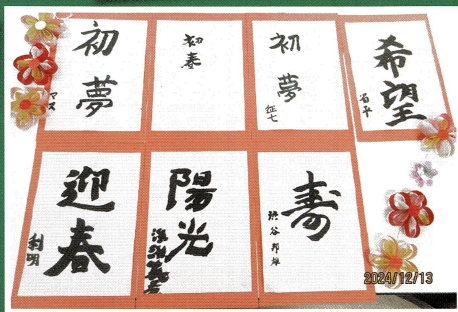 初夢
マス
初春
初夢
征七
希望
省平
迎春
利明
陽光
寿
渋谷邦雄
2024/12/13